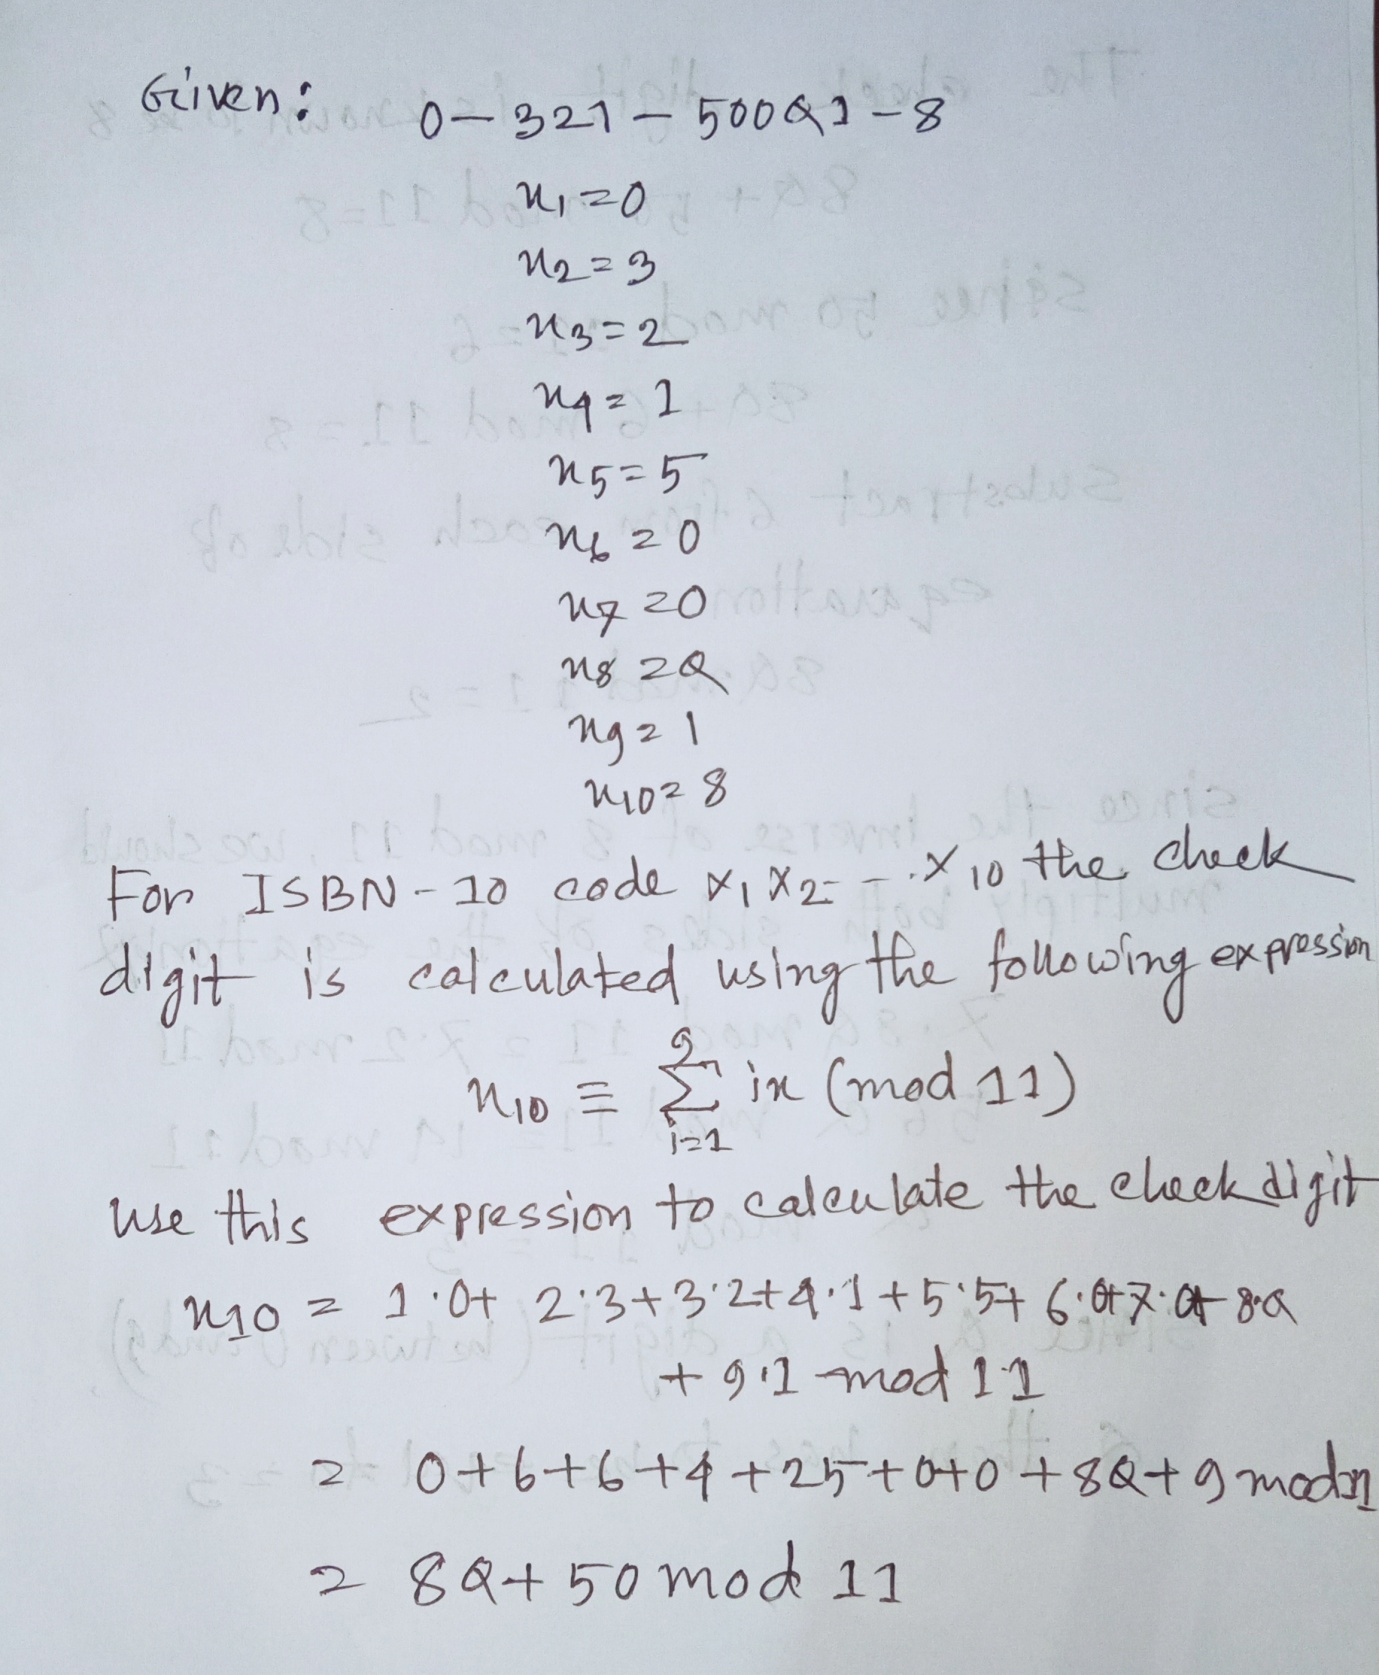 Given: 0-321-500Q1-8
x1=0
x2=3
x3=2
x4=1
x5=5
x6=0
x7=0
x8=Q
x9=1
x10=8
For ISBN-10 code x1 x2 - - . x10 the check
digit is calculated using the following expression
x10 ≡ 9 Σ i=1 ix (mod 11)
use this expression to calculate the check digit
x10 = 1·0+ 2·3+3·2+4·1+5·5+ 6·0+7·0+ 8·Q
+ 9·1 mod 11
= 0+6+6+4+25+0+0+8Q+9 mod 11
= 8Q+50 mod 11